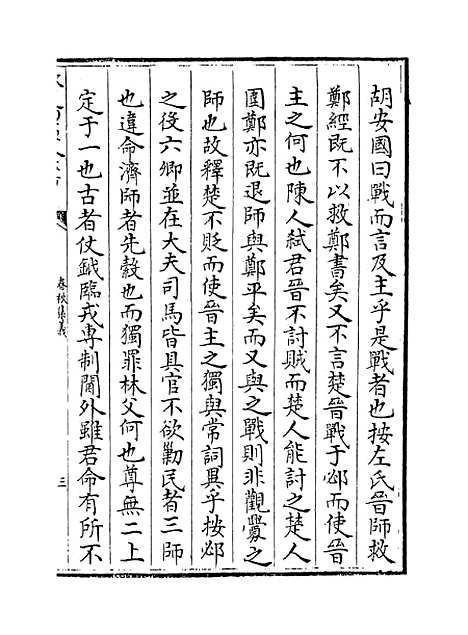 胡安國曰戰而言及主乎是戰者也按左氏晉師救
鄭經既不以救鄭書矣又不言楚晉戰于邲而使晉
主之何也陳人弑君晉不討賊而楚人能討之楚人
圍鄭亦既退師與鄭平矣而又與之戰則非觀釁之
師也故釋楚不貶而使晉主之獨與常詞異乎按邲
之役六卿並在大夫司馬皆具官不欲勦民者三師
也違命濟師者先縠也而獨罪林父何也尊無二上
定于一也古者仗鉞臨戎專制閫外雖君命有所不
春秋集義
三